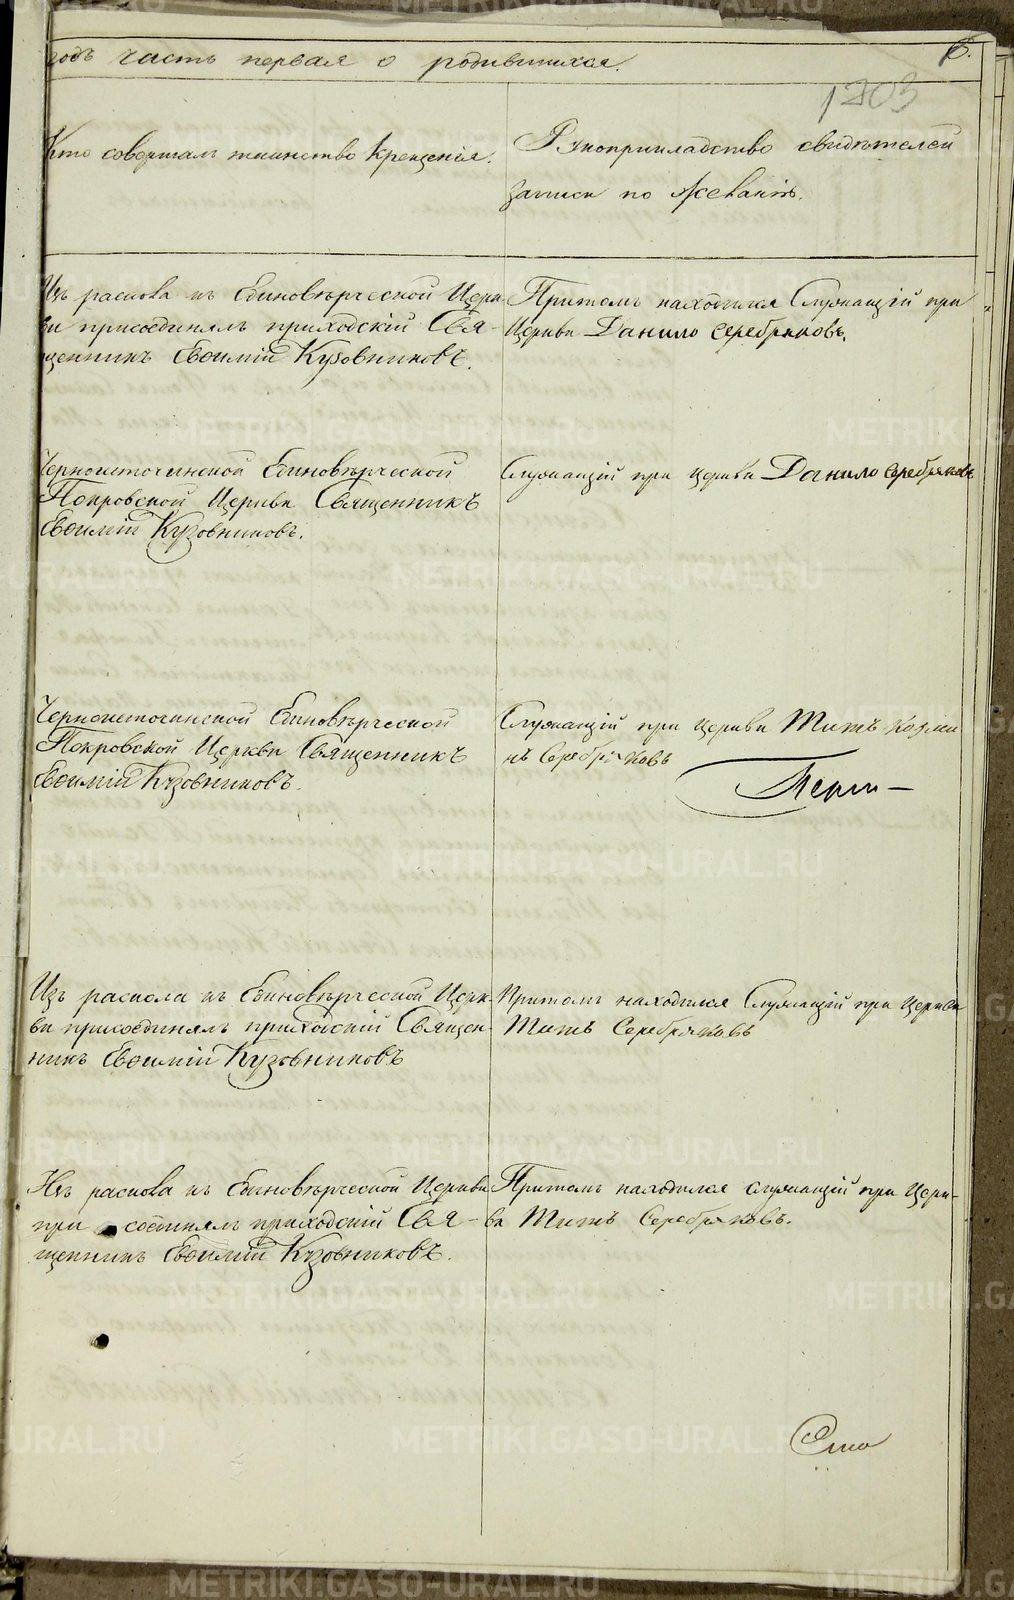 годъ часть первая о родившихся.
6.
1203
Кто совершалъ таинство крещенія.
Рукоприкладство свидѣтелей
записи по желанію.
Изъ раскола къ Единовѣрческой Церк-
ви присоединялъ приходскій Свя-
щенникъ Евѳимій Кузовниковъ.
Притомъ находился Служащій при
Церкви Данило Серебряковъ.
Черноисточинской Единовѣрческой
Покровской Церкви Священникъ
Евѳимій Кузовниковъ.
Служащій при церкви Данило Серебряковъ
Черноисточинской Единовѣрческой
Покровской Церкви Священникъ
Евѳимій Кузовниковъ.
Служащій при церкви Титъ Козми-
нъ Серебряковъ
Изъ раскола къ Единовѣрческой Церк-
ви присоединялъ приходскій Священ-
никъ Евѳимій Кузовниковъ
Притомъ находился Служащій при Церкви
Титъ Серебряковъ
Изъ раскола къ Единовѣрческой Церкви
присоединялъ приходскій Свя-
щенникъ Евѳимій Кузовниковъ.
Притомъ находился служащій при Церк-
ви Титъ Серебряковъ.
METRIKI.GASO-URAL.RU